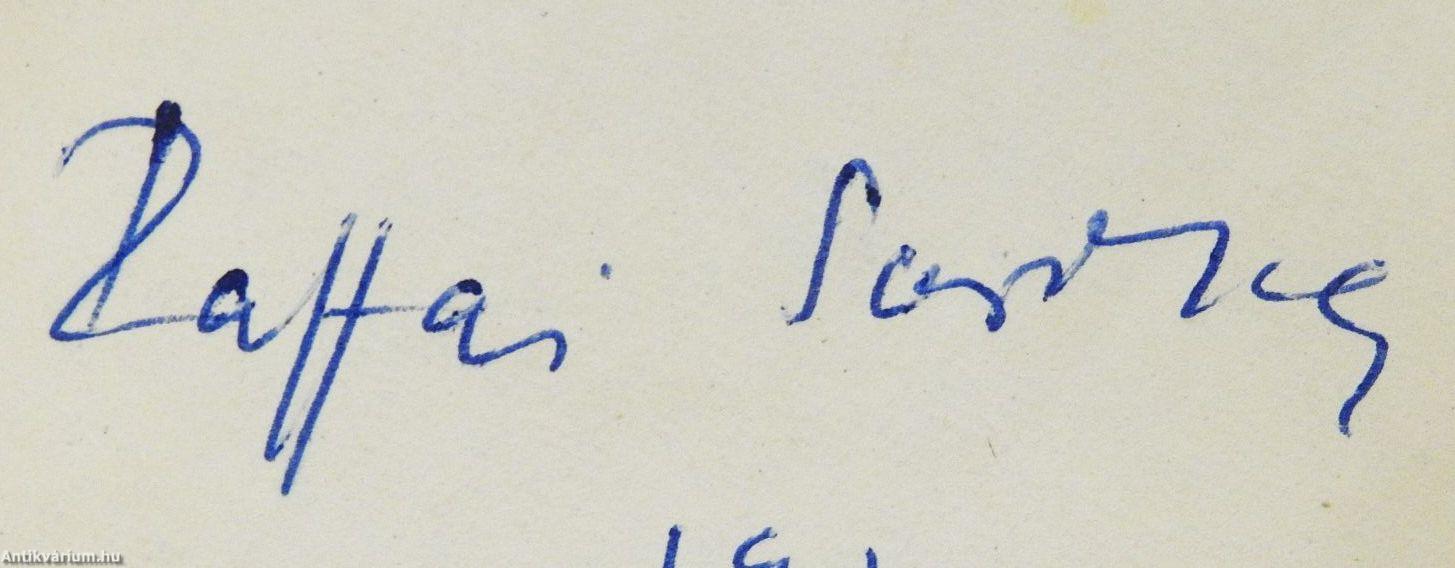 Raffai Sarolta
Antikvárium.hu